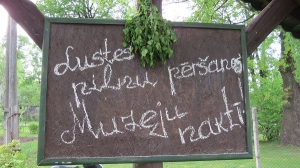 Lustes
pilnu pēršanos
Muzeju
naktī!